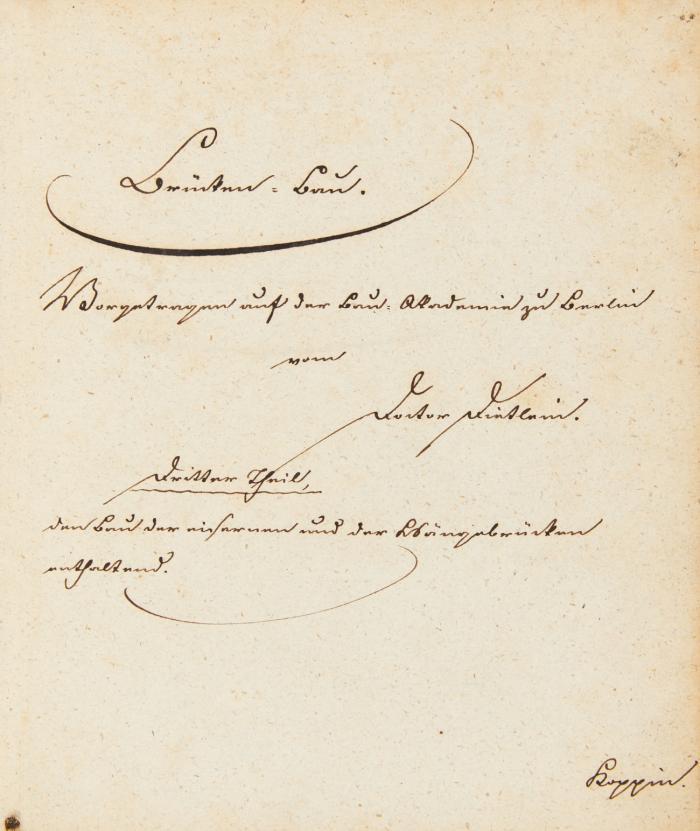 Brücken-Bau.
Vorgetragen auf der Bau-Akademie zu Berlin
vom
Doctor Dietlein.
Dritter Theil,
den Bau der eisernen und der Hängebrücken
enthaltend.
Koppin.